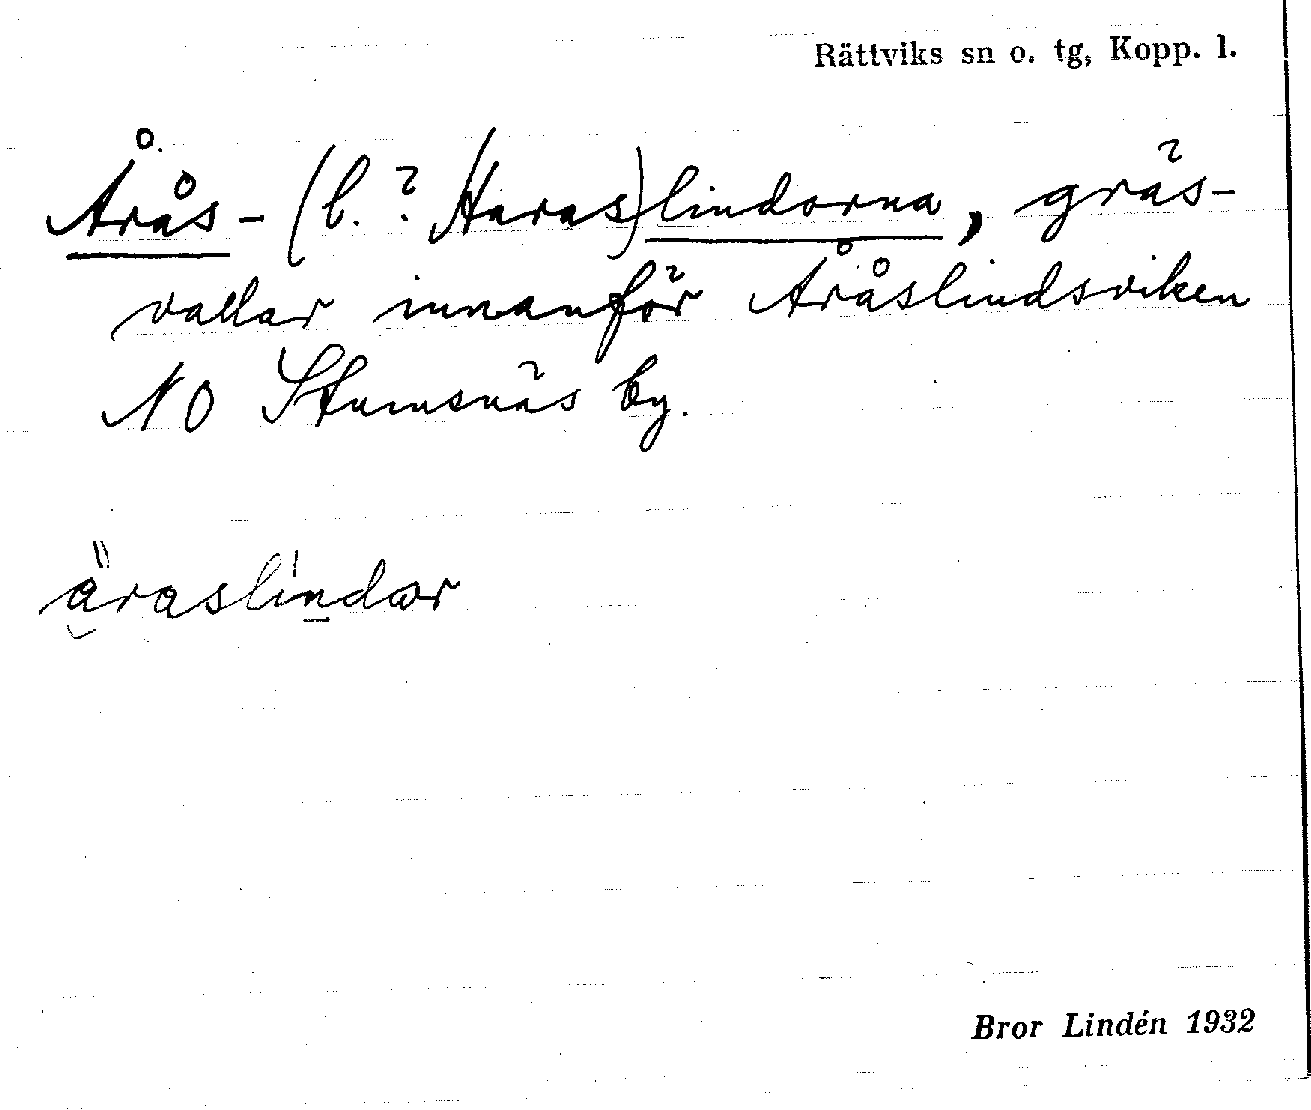 Rättviks sn o. tg, Kopp. l.
Årås-(l. ? Haras)lindorna, gräs-
vallar innanför Åråslindsviken
NO Stumsnäs by.
äraslindar
Bror Lindén 1932